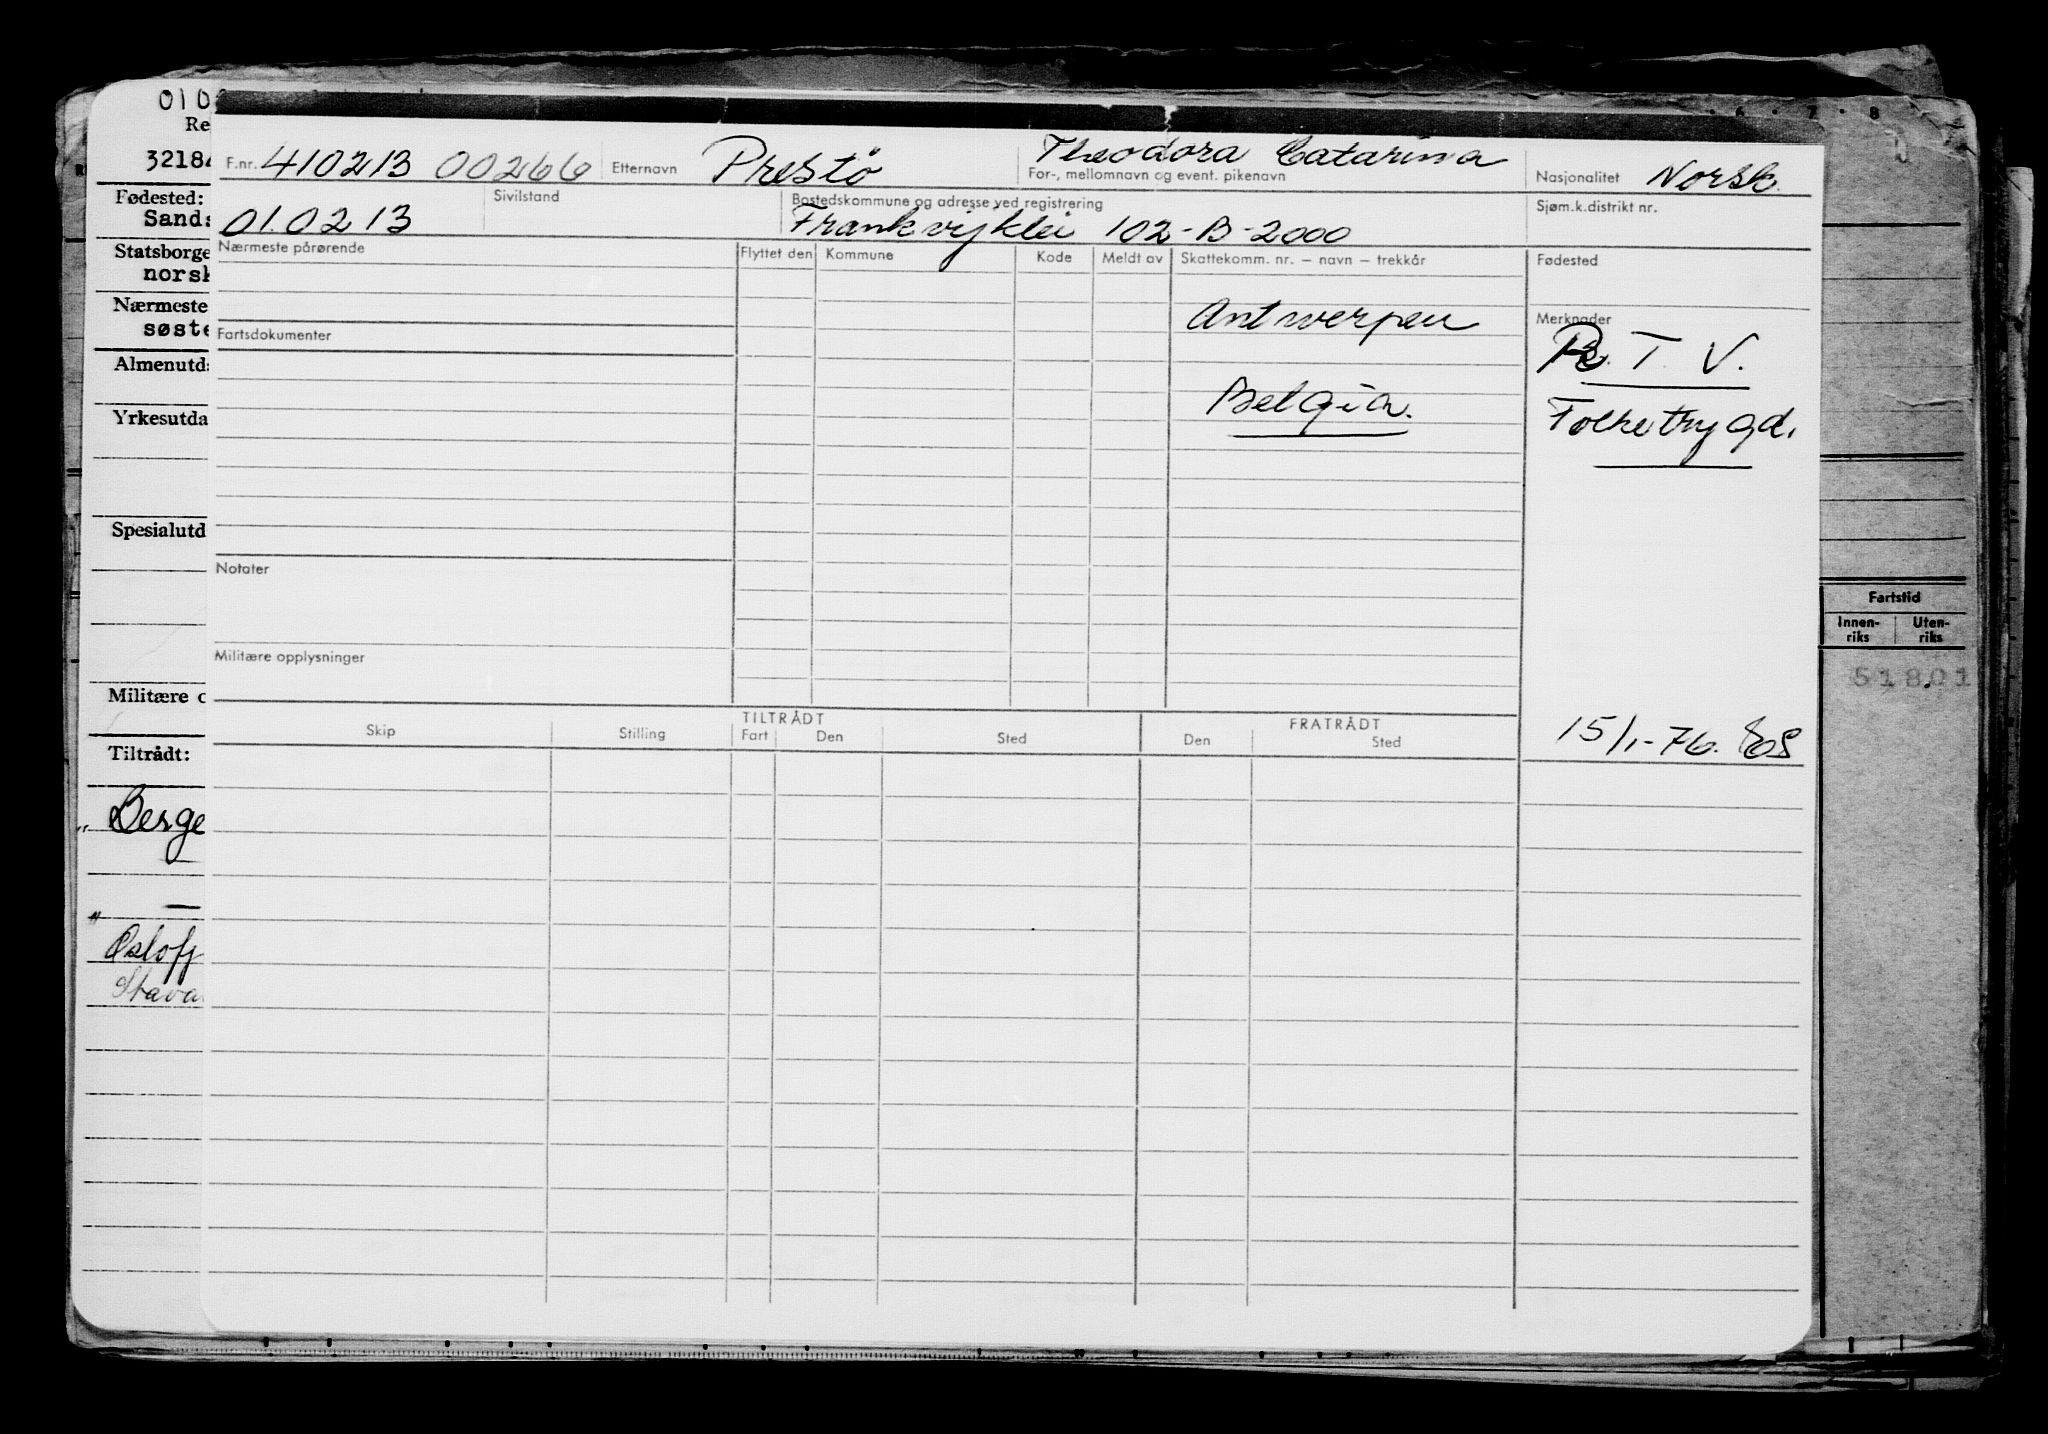 010
Re
32184
Fødested:
Sands
Statsborge
norsk
Nærmeste
søste
Almenutda
Yrkesutda
Spesialutd
Militære o
Tiltrådt:
Berge
Oslofj
Stava
F.nr. 410213 00266 Etternavn Prestö Theodora Catarina
For-, mellomnavn og event. pikenavn
Nasjonalitet Norsk.
01.02 13
Sivilstand
Bostedskommune og adresse ved registrering
Frankvijklei 102-B-2000
Sjøm.k.distrikt nr.
Nærmeste pårørende Flyttet den Kommune Kode Meldt av Skattekomm. nr. – navn – trekkår Fødested
Antwerpen
Belgia.
Merknader
R. T. V.
Folketrygd.
15/1-76.
Fartsdokumenter
Notater
Militære opplysninger
TILTRÅDT FRATRÅDT
Skip Stilling Fart Den Sted Den Sted
6 7 8
Fartstid
Innen-
riks
Uten-
riks
51801